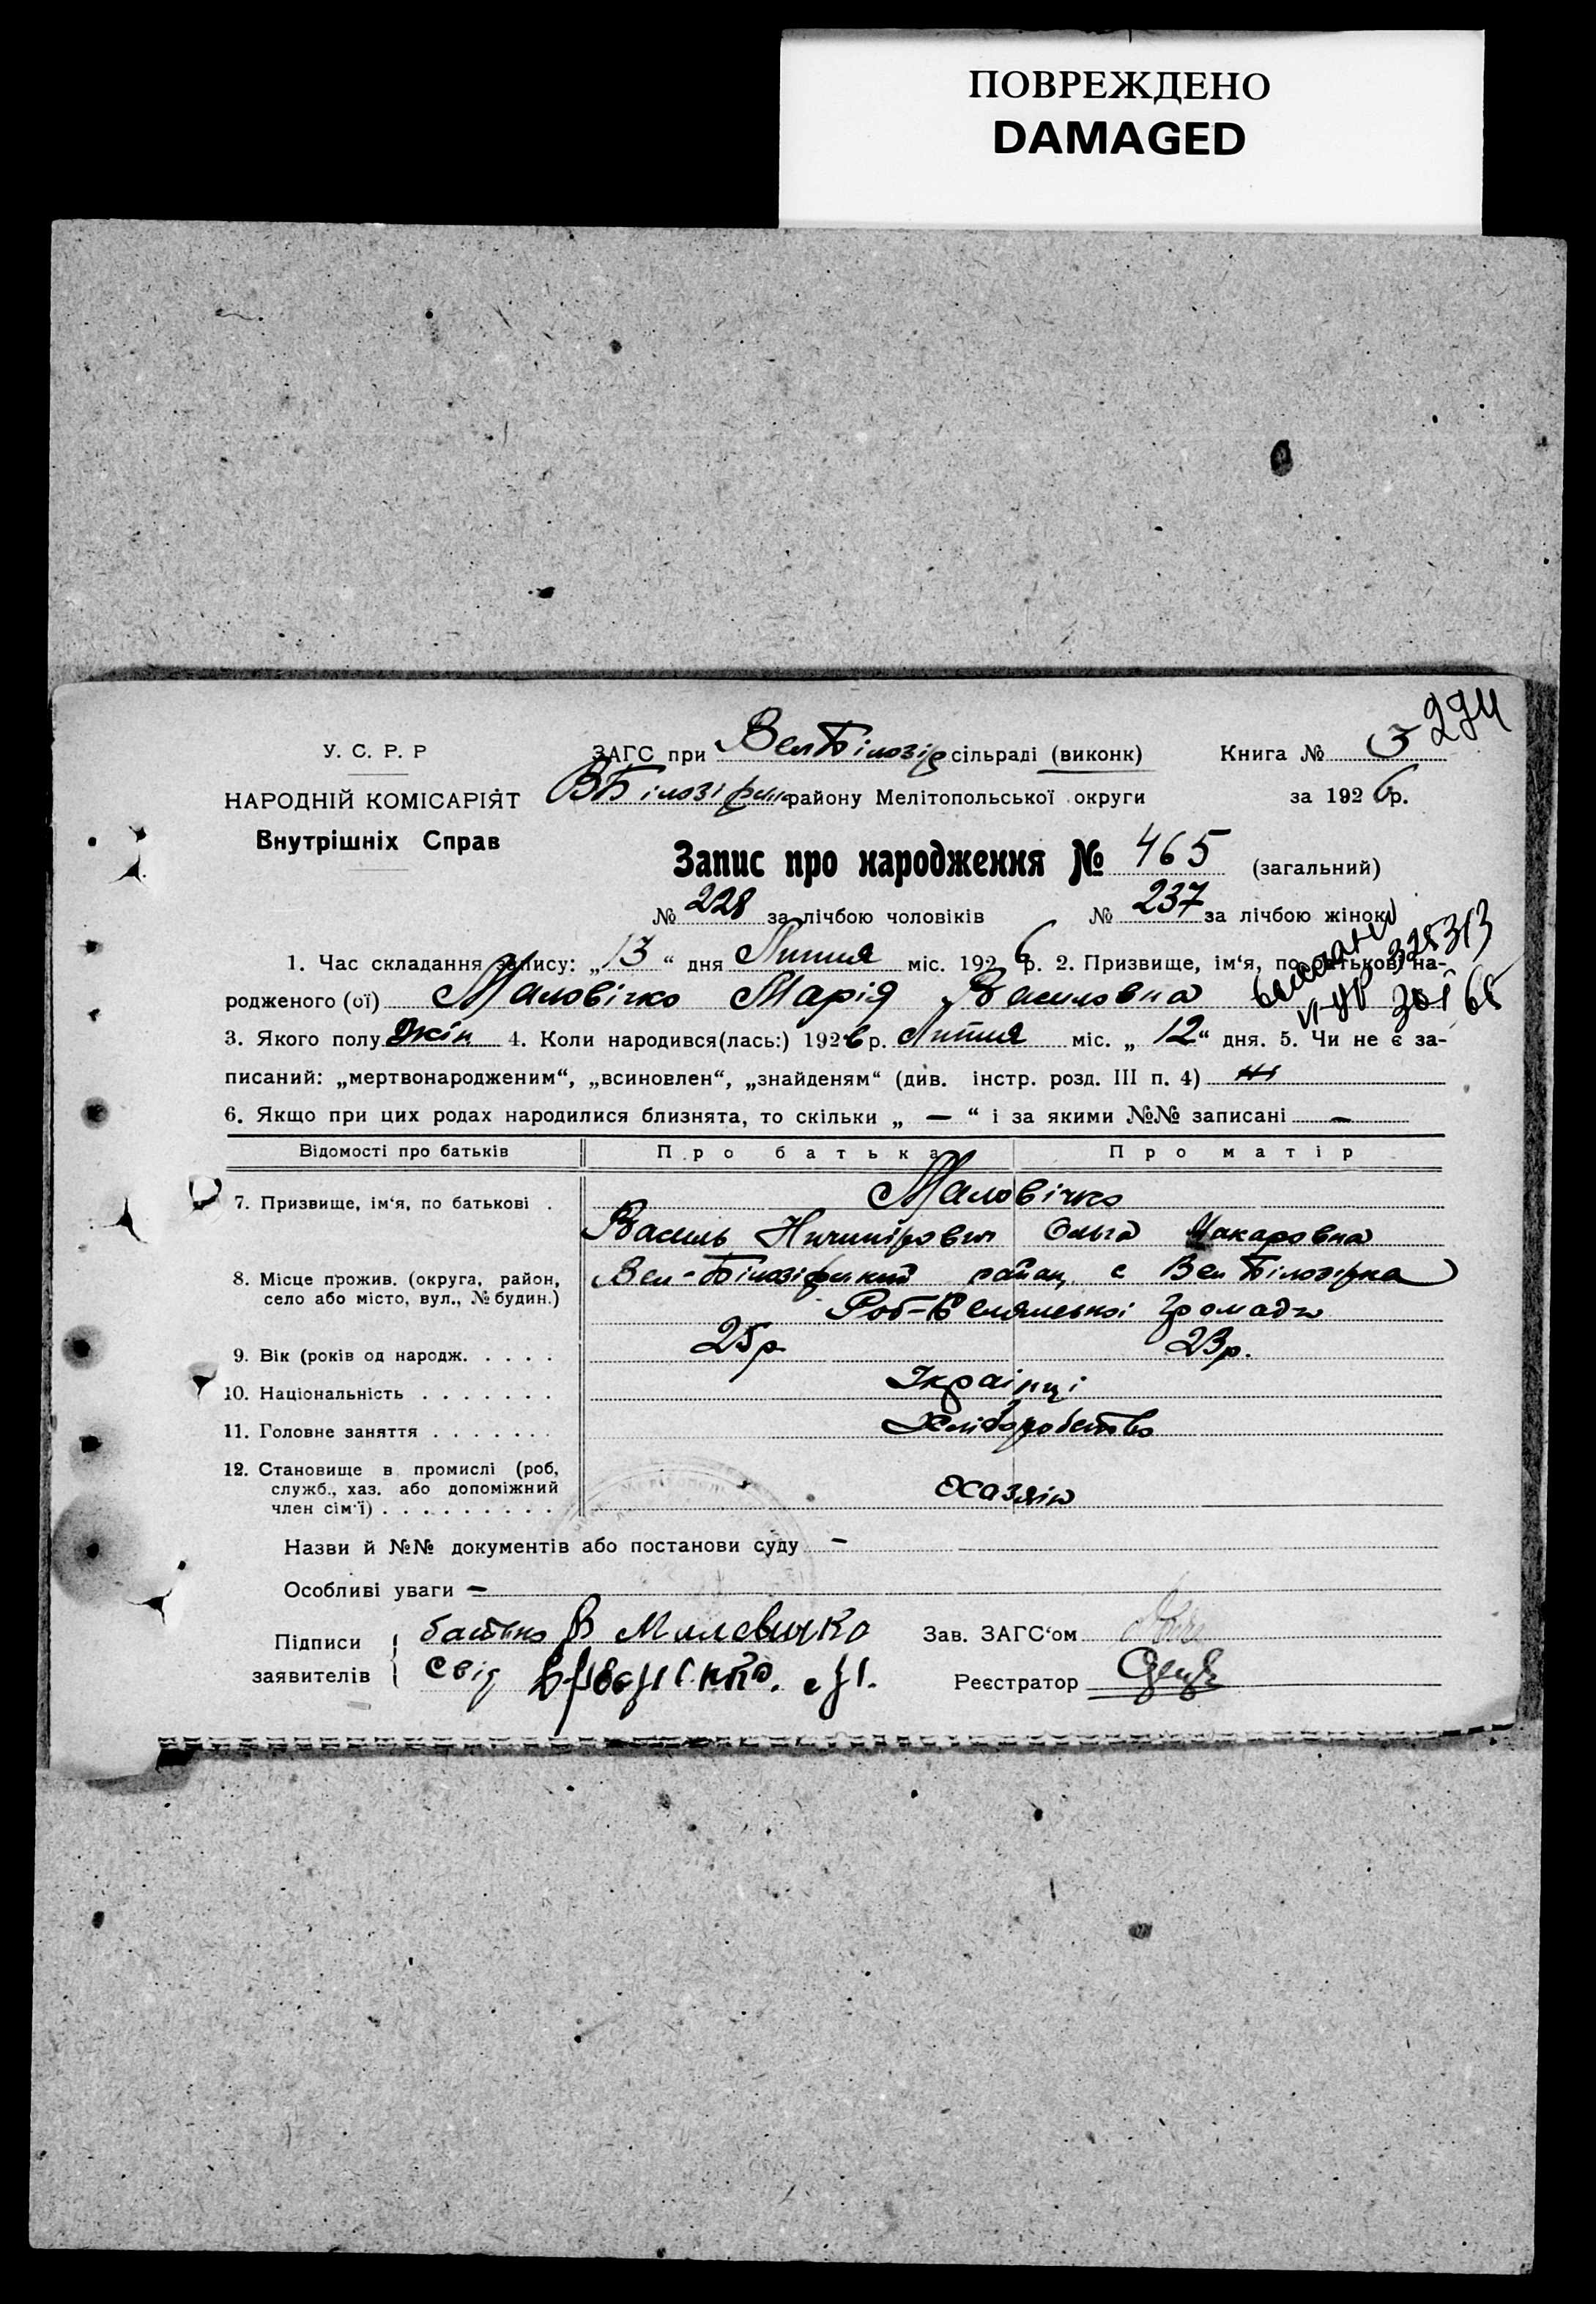 ПОВРЕЖДЕНО
DAMAGED
294
У. С. Р. Р ЗАГС при Вел Білозір сільраді (виконк) Книга № 3
НАРОДНІЙ КОМІСАРІЯТ ВБілозірськ району Мелітопольської округи за 1926 р.
Внутрішніх Справ
Запис про народження № 465 (загальний)
№ 228 за лічбою чоловіків № 237 за лічбою жінок
1. Час складання запису: „13“ дня Липня міс. 1926 р. 2. Призвище, ім‘я, по батькові на-
родженого (ої) Маловічко Марія Василовна
3. Якого полу жін 4. Коли народився(лась:) 1926 р. Липня міс. „12“ дня. 5. Чи не є за-
писаний: „мертвонародженим“, „всиновлен“, „знайденям“ (див. інстр. розд. III п. 4) ні
6. Якщо при цих родах народилися близнята, то скільки „ — “ і за якими №№ записані —
Відомості про батьків Про батька Про матір
7. Призвище, ім‘я, по батькові . Маловічко
Василь Ничипірович Ольга Макаровна
8. Місце прожив. (округа, район, село або місто, вул., № будин.) Вел-Білозірський район, с Вел Білозірка
Роб-Селянської громади
9. Вік (років од народж. . . . . 25 р. 23 р.
10. Національність . . . . . . . Українці
11. Головне заняття . . . . . . . Хліборобство
12. Становище в промислі (роб, служб., хаз. або допоміжний член сім‘ї) . . . . . . . . . хазяїн
Назви й №№ документів або постанови суду —
Особливі уваги —
Підписи батько В Маловичко Зав. ЗАГС‘ом
заявителів Свід Реєстратор